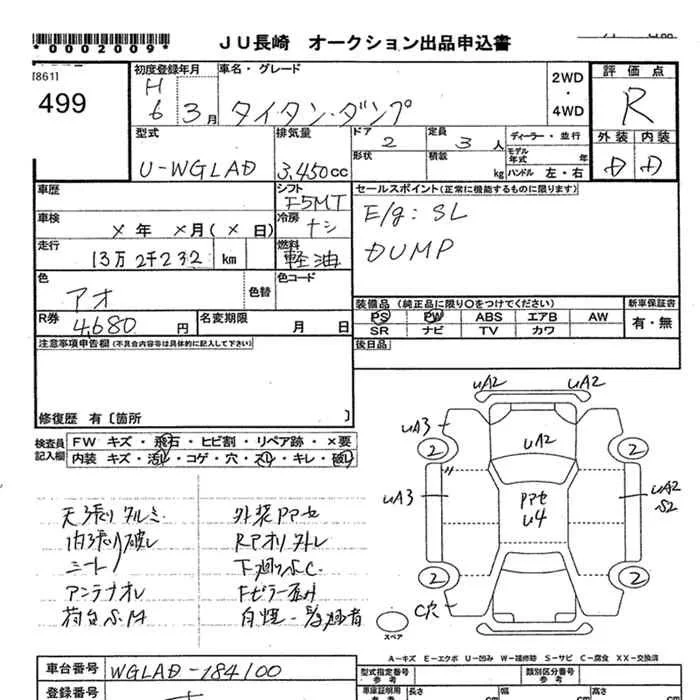 *0002009*
JU長崎 オークション出品申込書
[861]
499
初度登録年月
H
6 3月
車名・グレード
タイタン・ダンプ
2WD
・
4WD
評価点
R
外装 内装
D D
型式
U-WGLAD
排気量
3,450cc
ドア
2
定員
3人
形状
積載
kg
ディーラー・並行
モデル年式 年
ハンドル 左・右
車歴
シフト
F5MT
セールスポイント(正常に機能するものに限ります)
E/g: SL
DUMP
車検
×年 ×月(×日)
冷房
ナシ
走行
13万2千232 km
燃料
軽油
色
アオ
色替
色コード
R券
4,680 円
名変期限
月 日
装備品(純正品に限り○をつけてください)
PS PW ABS エアB AW
SR ナビ TV カワ
新車保証書
有・無
注意事項申告欄(不具合内容等は具体的に記入して下さい)
後日品
修復歴 有〔箇所 〕
検査員
記入欄
FW キズ・飛石・ヒビ割・リペア跡・×要
内装 キズ・汚レ・コゲ・穴・スレ・キレ・破レ
天張りタルミ
内張り破レ
シート
アンテナオレ
荷台S,M
外装PPアセ
Rアオリ外レ
下廻りS,C
uA2 uA2
uA3
2 2
uA2
uA3
PPアセ
u4
uA2
S2
2 2
C穴
スペア
A-キズ E-エクボ U-凹み W-補修跡 S-サビ C-腐食 XX-交換済
車台番号
WGLAD-184100
登録番号
型式指定番号
参考
類別区分番号
参考
車庫証明用
長さ
cm
幅
cm
高さ